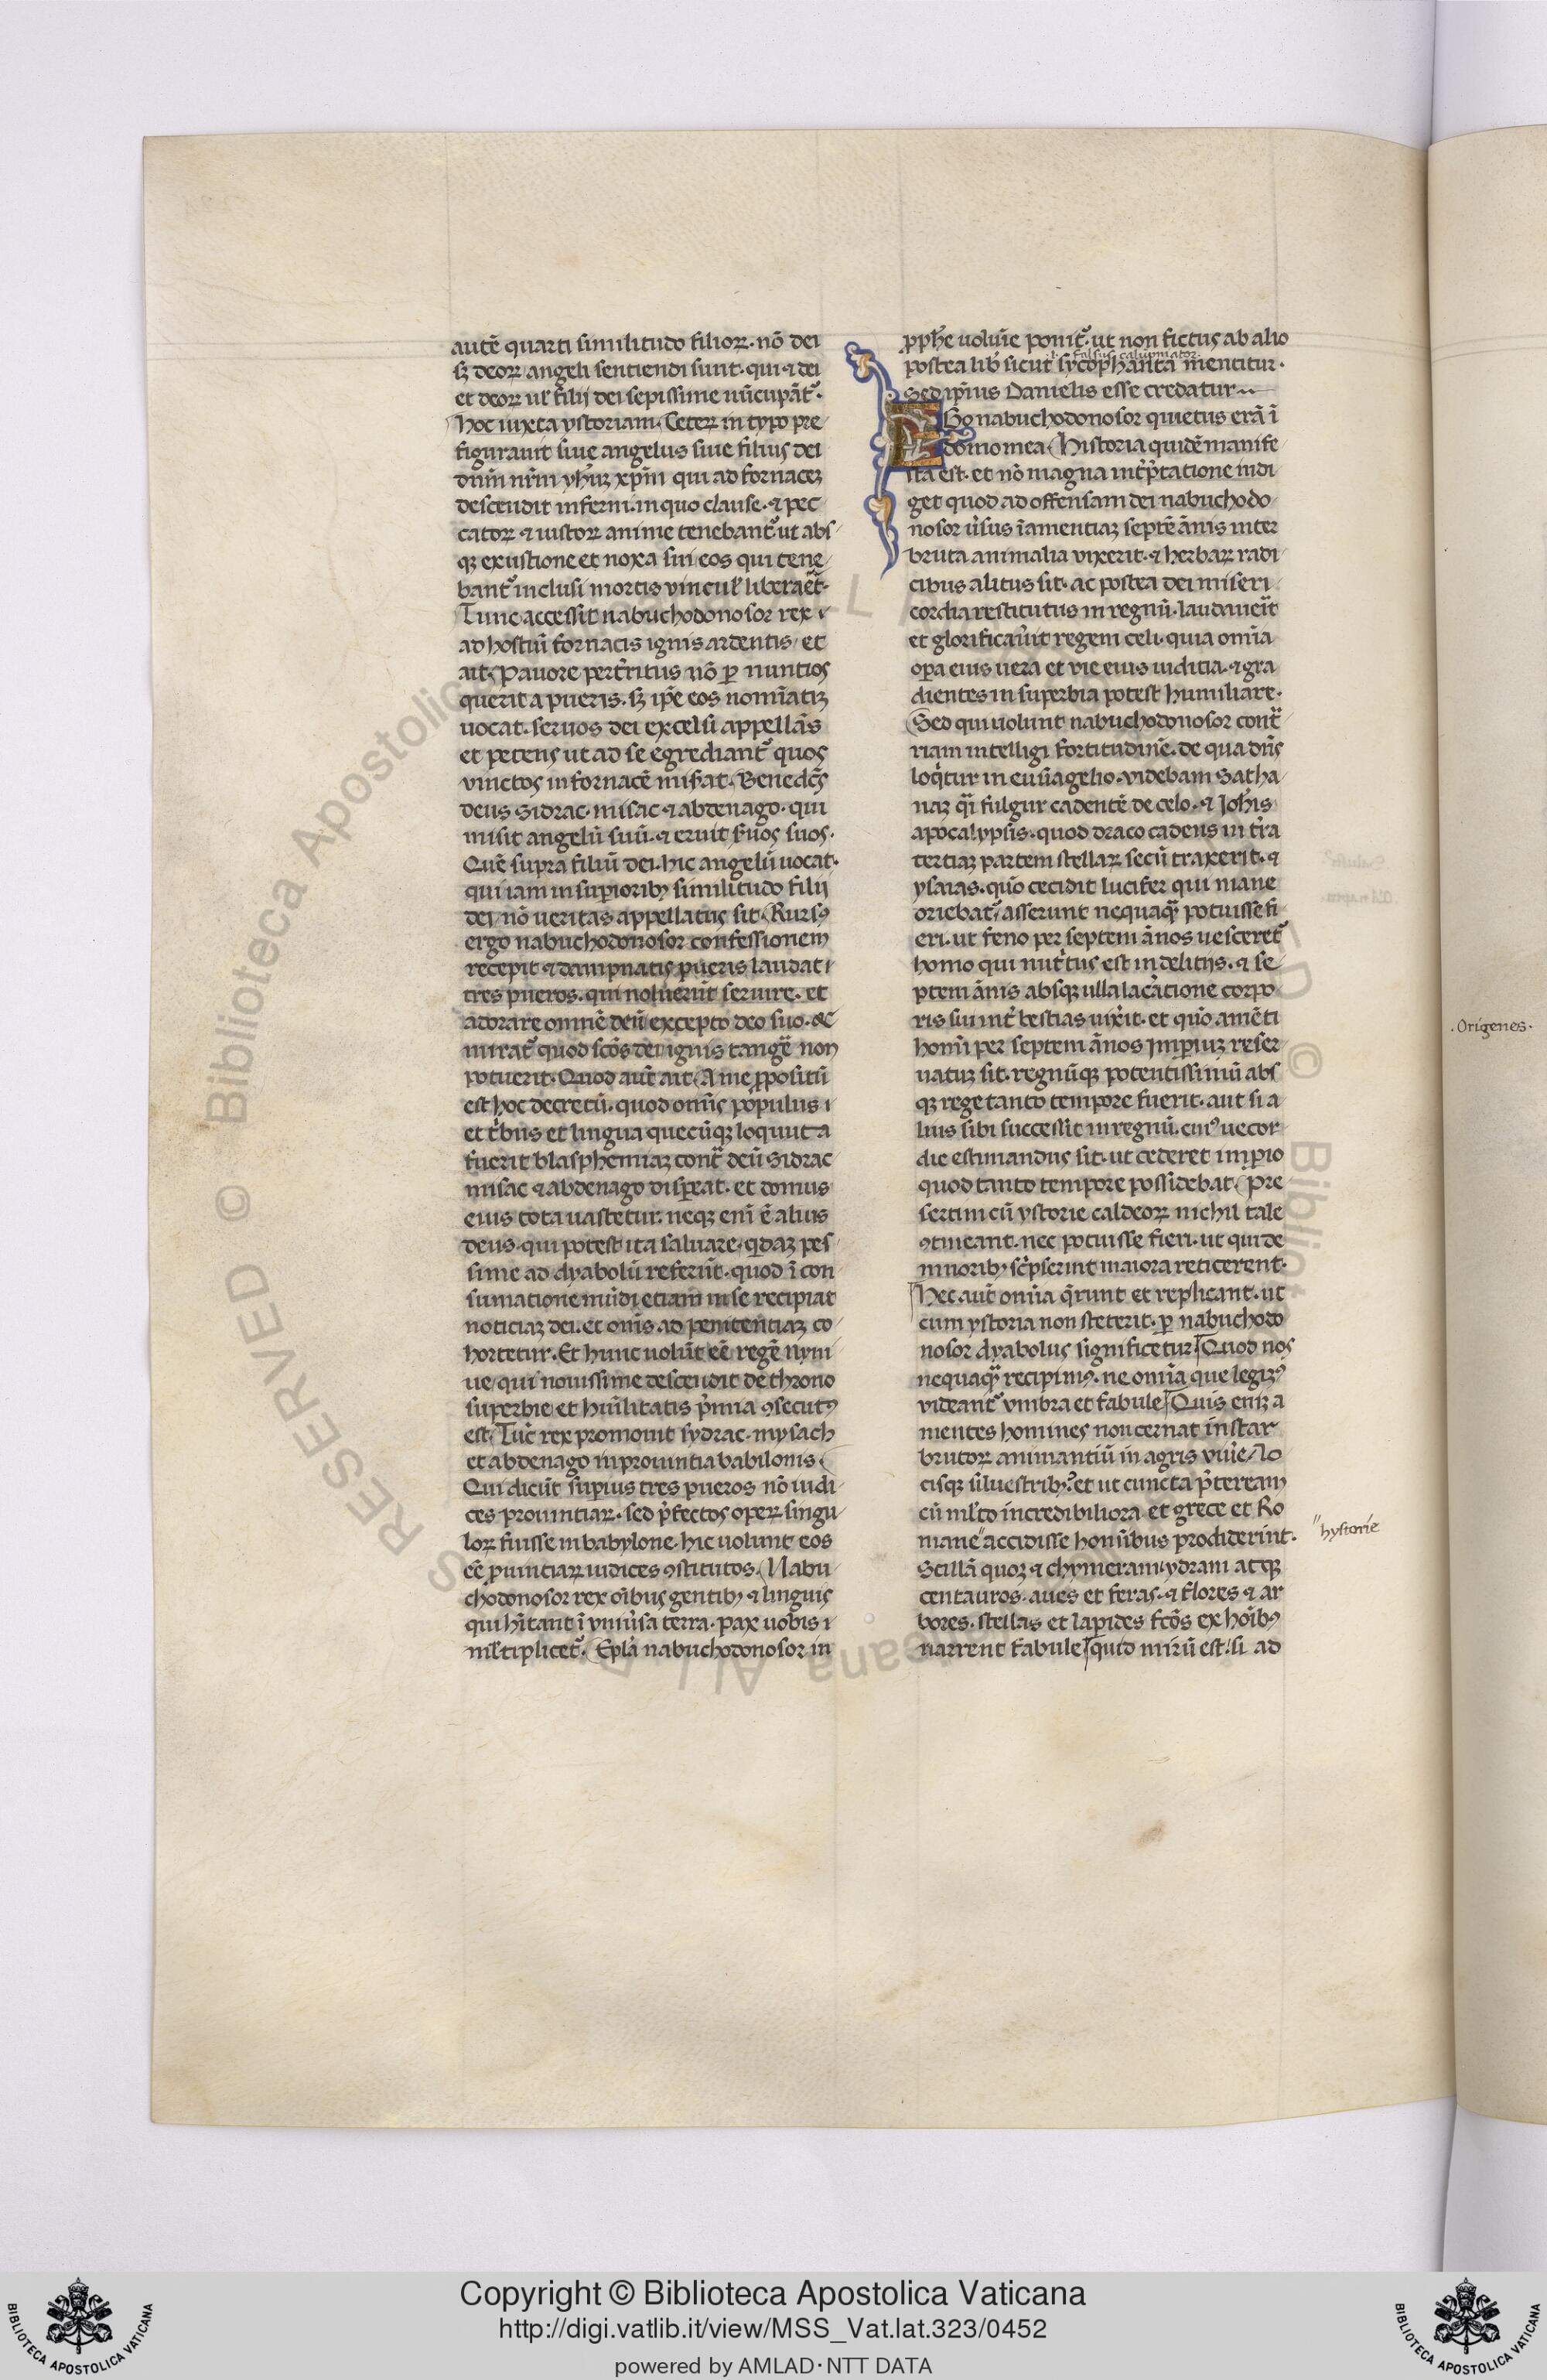 autē quarti similitudo filioꝝ. nō dei
sꝫ deoꝝ angeli sentiendi sunt. qui ⁊ dei
et deoꝝ uł filij dei sepissime nūcupāt᷑.
hoc iuxta ystoriam. Ceteꝝ in typo pre
figurauit siue angelus siue filius dei
dn̄m nr̄m yhūꝫ xp̄m qui ad fornaceꝫ
descendit inferni. in quo clause. ⁊ pec
catoꝝ ⁊ iustoꝝ anime tenebant᷑ ut abs
qꝫ exustione et noxa sui eos qui tene
bant᷑ inclusi mortis vincuł liberaēt.
Tunc accessit nabuchodonosor rex
ad hostiū fornacis ignis ardentis et
ait. Pauore pert̄ritus nō ꝑ nuntios
querit a pueris. sꝫ ip̄e eos nomīatiꝫ
uocat. seruos dei excelsi appellās
et petens ut ad se egrediant᷑ quos
vinctos in fornacē mis̄at. Benedc̄s
deus Sidrac. misac ⁊ abdenago. qui
misit angelū suū. ⁊ eruit s̄uos suos.
Quē supra filiū dei. hic angelū uocat.
qui iam in suꝑioribꝫ similitudo filij
dei. nō ueritas appellatus sit. Rursꝰ
ergo nabuchodonosor confessionem
recepit ⁊ dampnatis pueris laudat
tres pueros. qui noluerūt seruire. et
adorare omnē deū excepto deo suo. &
mirat᷑ quod sc̄os dei ignis tange᷑ non
potuerit. Quod aut̄ ait. A me ꝓpositū
est hoc decretū. quod omīs populus
et t̄bus et lingua quecūqꝫ loquuta
fuerit blasphemiaꝫ cont᷑ deū Sidrac
misac ⁊ abdenago disꝑeat. et domus
eius tota uastetur. neqꝫ enī ē alius
deus. qui potest ita saluare. qͥdaꝫ pes
sime ad dyabolū referūt. quod ī con
sumatione mūdi etiam in se recipiat
noticiaꝫ dei. et om̄s ad penitentiaꝫ co
hortetur. Et hunc uolūt eē regē nyni
ue. qui nouissime descendit de throno
superbie et hūilitatis p̄mia ꝯsecutꝰ
est. Tūc rex promouit sydrac. mysach
et abdenago in prouintia babilonis
Qui dicūt suꝑius tres pueros nō iudi
ces prouintiaꝝ. sed p̄fectos opeꝝ singu
loꝝ fuisse in babylone. hic uolunt eos
eē ꝓuinciaꝝ iudices ꝯstitutos. Nabu
chodonosor rex oībus gentibꝫ ⁊ linguis
qui hītant ī vniūsa terra. pax uobis
mł̄tiplicet᷑. Epl̄a nabuchodonosor in
ꝓph̄e uolūīe ponit᷑. ut non fictus ab alio
.i. falsus calupniator.
postea lib̄ sicut sycophanta mentitur.
Sed ip̄ius Danielis esse credatur
Ego nabuchodonosor quietus erā ī
domo mea. Historia quidē manife
sta est. et nō magna int̄p̄tatione indi
get quod ad offensam dei nabuchodo
nosor ūsus ī amentiaꝫ septē ānis inter
bruta animalia vixerit. ⁊ herbaꝝ radi
cibus alitus sit. ac postea dei miseri
cordia restitutus in regnū. laudaueīt
et glorificaūit regem celi. quia omīa
oꝑa eius uera et vie eius iuditia. ⁊ gra
dientes in superbia potest humiliare.
Sed qui uolunt nabuchodonosor cont᷑
riam intelligi fortitudinē. de qua dn̄s
loqͥtur in euūagelio. videbam Satha
naꝫ qͣi fulgur cadentē de celo. ⁊ Joh̄is
apocalypsis. quod draco cadens in t̄ra
tertiaꝫ partem stellaꝝ secū traxerit. ⁊
ysaias. quō cecidit lucifer qui mane
oriebat᷑. asserunt nequaqͣ potuisse fi
eri. ut feno per septem ānos uesceret᷑
homo qui nut̄tus est in delitijs. ⁊ se
ptem ānis absqꝫ ulla lac̄atione corpo
ris sui int̄ bestias uix̄it. et quō amēti
homī per septem ānos imꝑiuꝫ reser
uatuꝫ sit. regnūqꝫ potentissimū abs
qꝫ rege tanto tempore fuerit. aut si a
lius sibi successit in regnū. cuiꝰ uecor
die estimandus sit. ut cederet imꝑio
quod tanto tempore possidebat. Pre
sertim cū ystorie caldeoꝝ nichil tale
ꝯtineant. nec potuisse fieri. ut qui de
minoribꝫ sc̄pserint maiora reticerent.
Hec aut̄ omīa q̄runt et replicant. ut
cum ystoria non steterit. ꝑ nabuchodo
nosor dyabolus significetur. Quod nos
nequaqͣ recipimꝰ. ne omīa que legimꝰ
videant᷑ vmbra et fabule. Quis enꝫ a
mentes homines non cernat instar
brutoꝝ animantiū in agris viūe. lo
cisqꝫ siluestribꝫ? et ut cuncta p̄teream
cū mł̄to incredibiliora et grece et Ro
mane" accidisse homībus prodiderint.
Scillā quoqꝫ ⁊ chymeram. ydram atqꝫ
centauros. aues et feras. ⁊ flores ⁊ ar
bores. stellas et lapides fc̄os ex hoībꝰ
narrent fabule. quid mirū est. si ad
"hystorie
.Origenes.
Copyright © Biblioteca Apostolica Vaticana
http://digi.vatlib.it/view/MSS_Vat.lat.323/0452
powered by AMLAD·NTT DATA
BIBLIOTECA APOSTOLICA VATICANA
BIBLIOTECA APOSTOLICA VATICANA